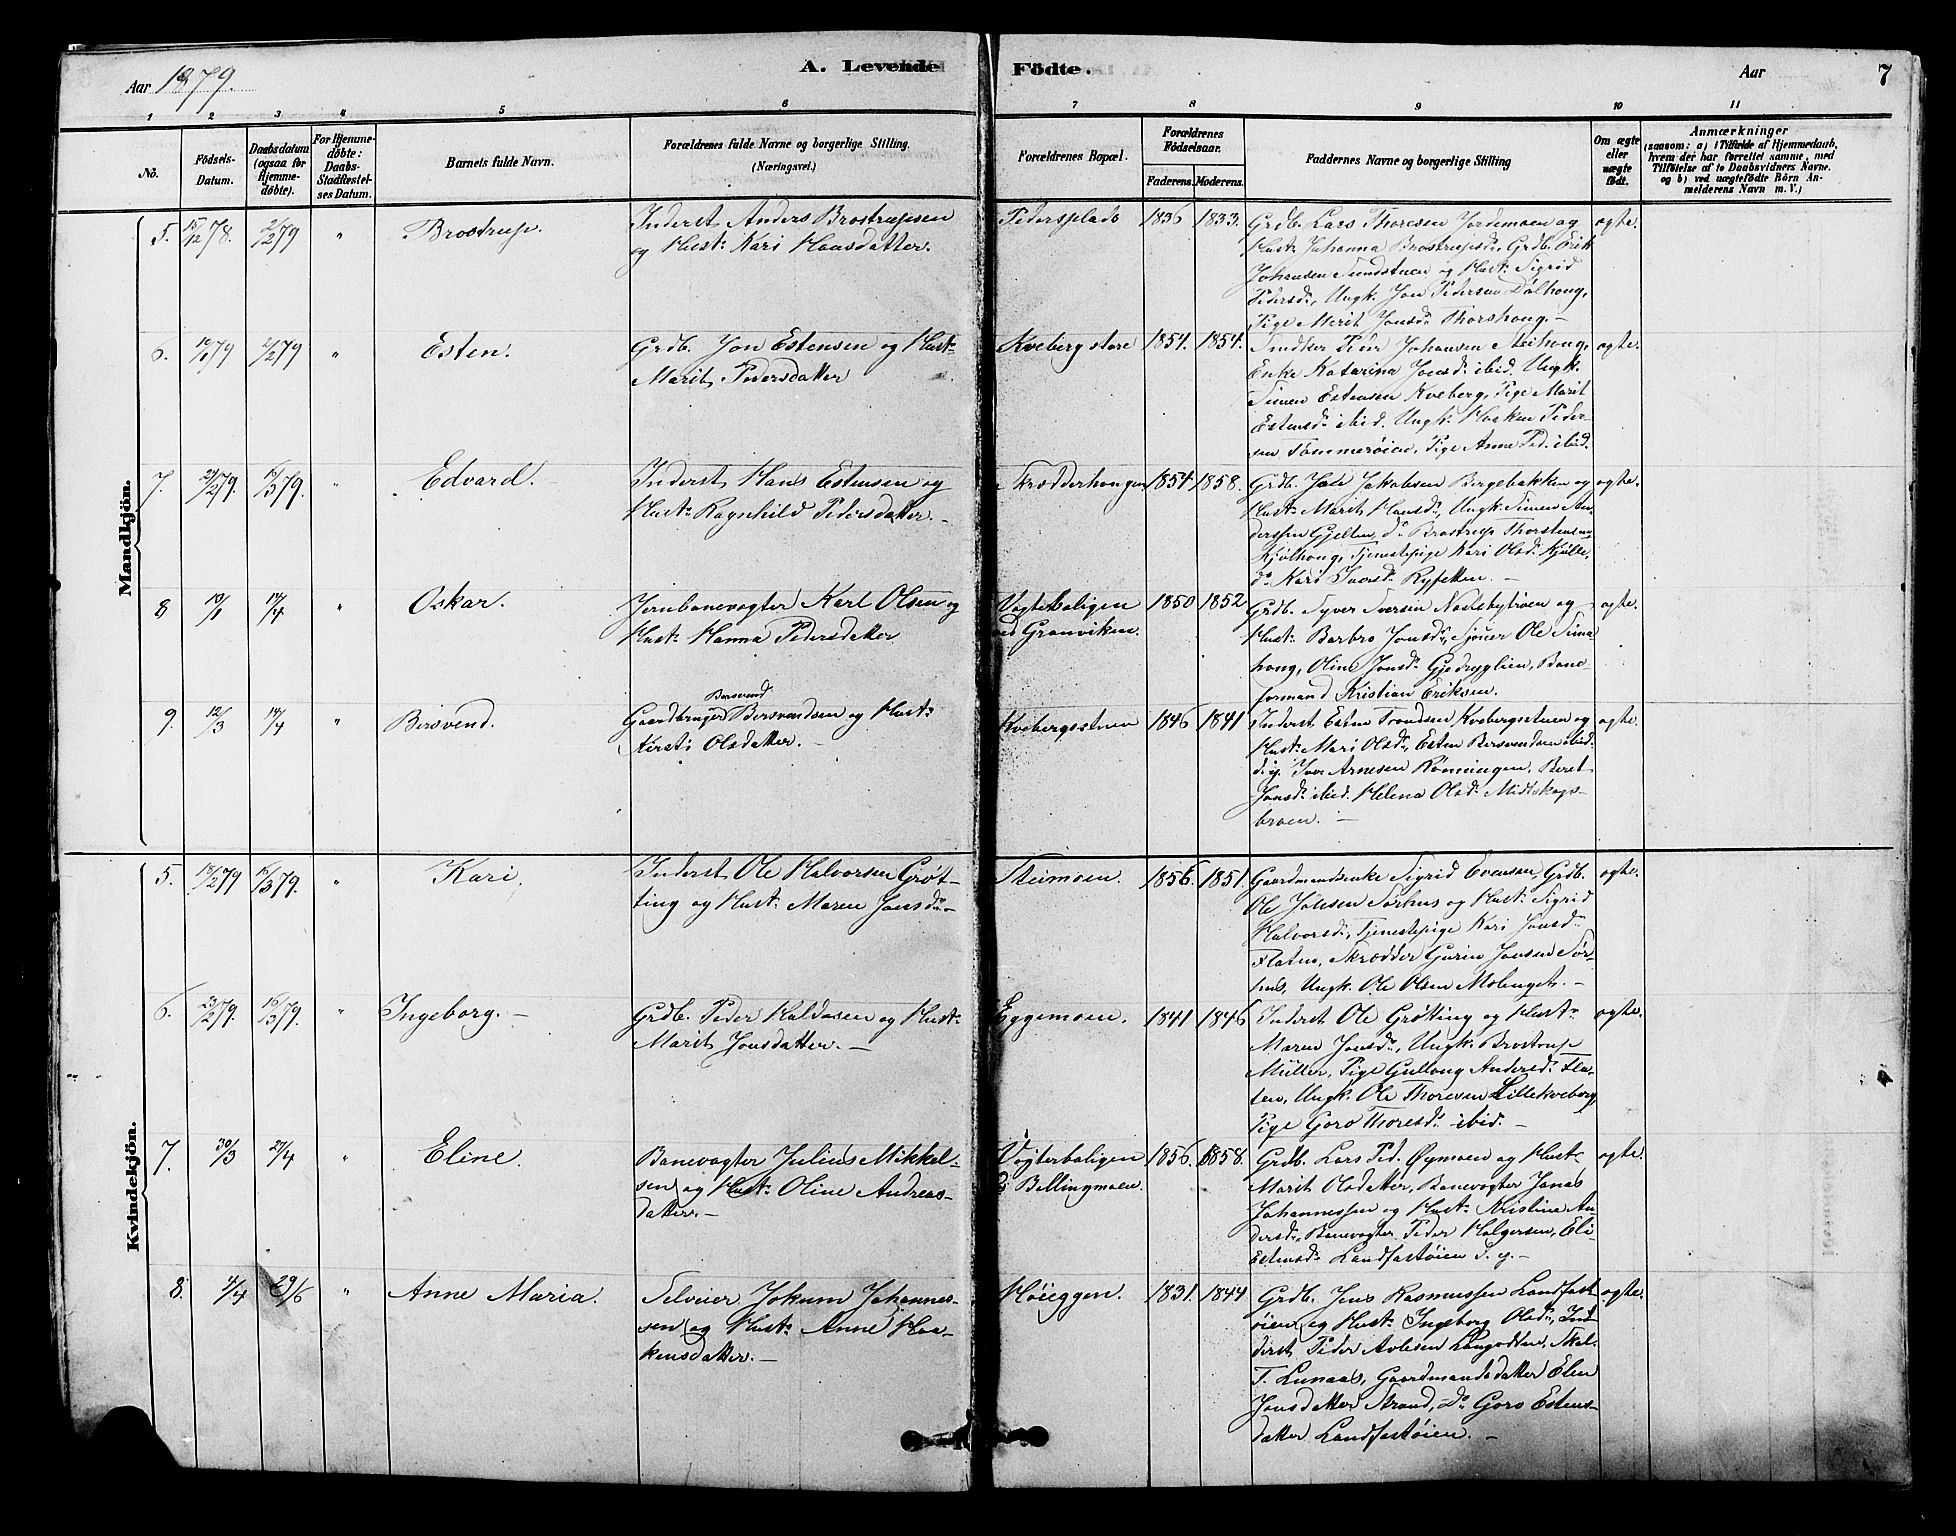 Aar 1879.
A. Levende Födte.
Aar
7
1 2 3 4 5 6 7 8 9 10 11
No.
Födsels-Datum.
Daabsdatum (ogsaa for Hjemme-döbte).
For Hjemme-döbte: Daabs-Stadfæstel-ses Datum.
Barnets fulde Navn.
Forældrenes fulde Navne og borgerlige Stilling (Næringsvei.)
Forældrenes Bopæl.
Forældrenes Födselsaar.
Faderens. Moderens.
Faddernes Navne og borgerlige Stilling
Om ægte eller uægte födt.
Anmærkninger
(saasom: a) i Tilfælde af Hjemmedaab,
hvem der har forrettet samme, med
Tilföielse af to Daabsvidners Navne.
og b) ved uægtefödte Börn An-
melderens Navn m. V.)
Mandkjön.
5. 15/12 78. 2/2 79 " Brostrup.
Inderst Anders Brostrupsen
og Hust: Kari Hansdatter.
Pedersplads 1836 1833.
Grdb. Lars Thoresen Jordemoen og
Hust: Johanna Brostrupsd., Grdb. Erik
Johansen Sundstuen og Hust: Sigrid
Pedersd., Ungk. Jon Pedersen Dølhong,
Pige Merit Jonsd. Thorshong. —
ægte.
6. 10/1 79 2/2 79 " Esten.
Grdb. Jon Estensen og Hust:
Marit Pedersdatter
Kveberg store 1854. 1854.
Snedker Peder Johansen Steihong,
Enke Katarina Jonsd. ibid. Ungk.
Simen Estensen Kveberg, Pige Marit
Estensd. ibid. Ungk. Haaken Peder-
sen Tømmerøien, Pige Anne Ped. ibid.
ægte.
7. 23/2 79. 16/3 79. " Edvard. —
Inderst Hans Estensen og
Hust: Ragnhild Pedersdatter. —
Skrædderhongen 1854 1858.
Grdb. Jole Jakobsen Bergebakken og
Hust: Marit Hansd., Ungk. Simen An-
derssen Gjelten, do Brostrup Thorstensen
Kjølhong, Tjenestepige Kari Olsd. Kjølle,
do Kari Iversd. Ryfetten. —
ægte.
8 19/1 14/4 " Oskar.
Jernbanevogter Karl Olsen og
Hust: Hanna Pedersdatter
Vogterboligen
ved Granviken. 1850 1852
Grdb. Syver Sversen Nordsbytrøen og
Hust: Barbro Jonsd., Sjouer Ole Sima
hong, Oline Jonsd. Gjedryglien, Bane-
formand Kristian Eriksen.
ægte.
9. 12/3 14/4 " Bersvend.
Bersvend
Gaardbruger Bersvendsen og Hust:
Kersti Olsdatter. —
Kvebergsstuen 1846 1841
Inderst Esten Trondsen Kvebergsstuen og
Hust: Mari Olsd., Esten Bersvendsen ibid.
d.y. Iver Arnesen Rønningen, Beret
Jonsd. ibid. Helena Olsd. Midtskogs-
broen. —
ægte.
Kvindekjön.
5. 18/2 79 16/3 79. " Kari.
Inderst Ole Halvorsen Grøt-
ting og Hust: Maren Jonsd. —
Steimoen. 1856. 1851.
Gaardmandsenke Sigrid Evensen, Grdb.
Ole Johsen Sørhus og Hust: Sigrid
Halvorsd., Tjenestepige Kari Jonsd.
Flaten, Skrædder Gurin Jonsen Sør-
hus, Ungk. Ole Olsen Moienget. —
ægte.
6. 23/2 79. 16/3 79. " Ingeborg. —
Grdb. Peder Haldosen og Hust:
Marit Jonsdatter. —
Eggemoen. 1841 1846
Inderst Ole Grøtting og Hust:
Maren Jonsd., Ungk. Brostrup
Müller, Pige Gullaug Andersd. Fla-
ten, Ungk. Ole Thoresen Lillekveberg,
Pige Goro Thoresd. ibid. —
ægte.
7. 30/3 27/4 " Eline.
Banevogter Julius Mikkel-
sen og Hust: Oline Andreas-
datter. —
Vogterboligen
Bellingmoen. 1856. 1858.
Grdb. Lars Ped. Øymoen og Hust:
Marit Olsdatter, Banevogter Jonas
Johannessen og Hust: Kristina An-
dersd., Banevogter Peder Holgersen, Eli
Estensd. Landfastøien d. y. —
ægte.
8. 4/4 29/6 " Anne Maria.
Selveier Jokum Johannes-
sen og Hust: Anne Haa-
kensdatter. —
Høieggen. 1831. 1844
Grdb. Jens Rasmussen Landfast-
øien og Hust: Ingeborg Olsd., Ind-
derst Peder Avlesen Langodden, Skol.
T. Lunaas, Gaardmandsdatter Elen
Jonsdatter Strand, do Goro Estens-
datter Landfastøien. —
ægte.